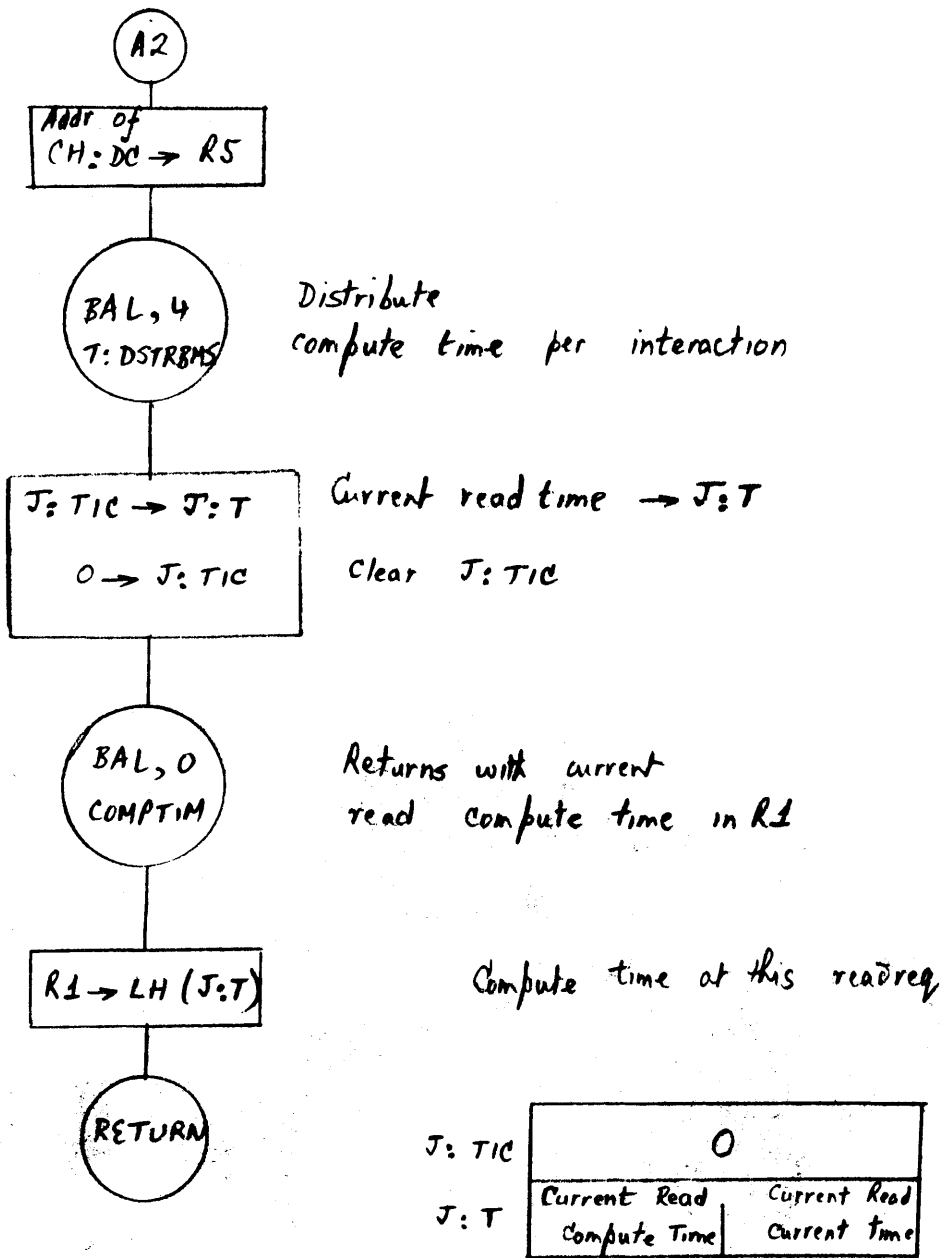 A2
Addr of
CH:DC → R5
BAL, 4
T:DSTRBMS
Distribute
compute time per interaction
J:TIC → J:T
0 → J:TIC
Current read time → J:T
Clear J:TIC
BAL, 0
COMPTIM
Returns with current
read compute time in R1
R1 → LH (J:T)
Compute time at this readreq
RETURN
J: TIC
0
J: T
Current Read
Compute Time
Current Read
Current time